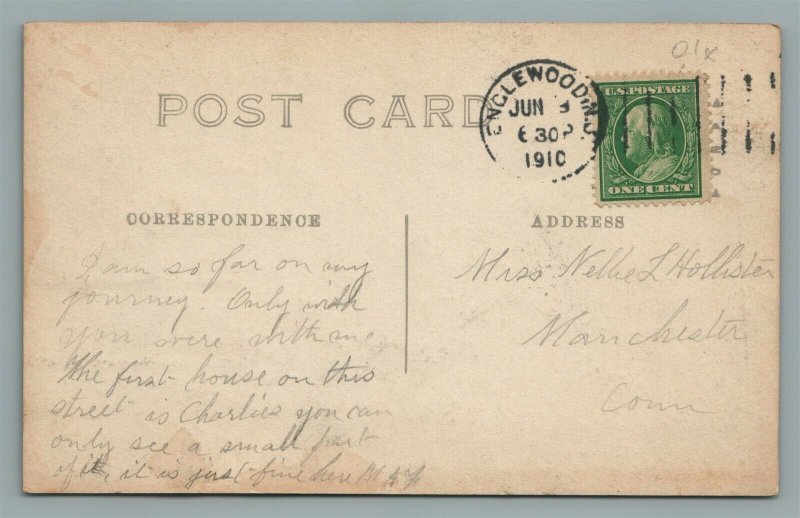 POST CARD
ENGLEWOOD N.J.
JUN
6 30 P
1910
U.S. POSTAGE
ONE CENT
CORRESPONDENCE
I am so far on my
journey. Only wish
you were with me.
The first house on this
street is Charlies you can
only see a small part
of it, it is just fine here
ADDRESS
Miss Nellie L Hollister
Manchester
Conn